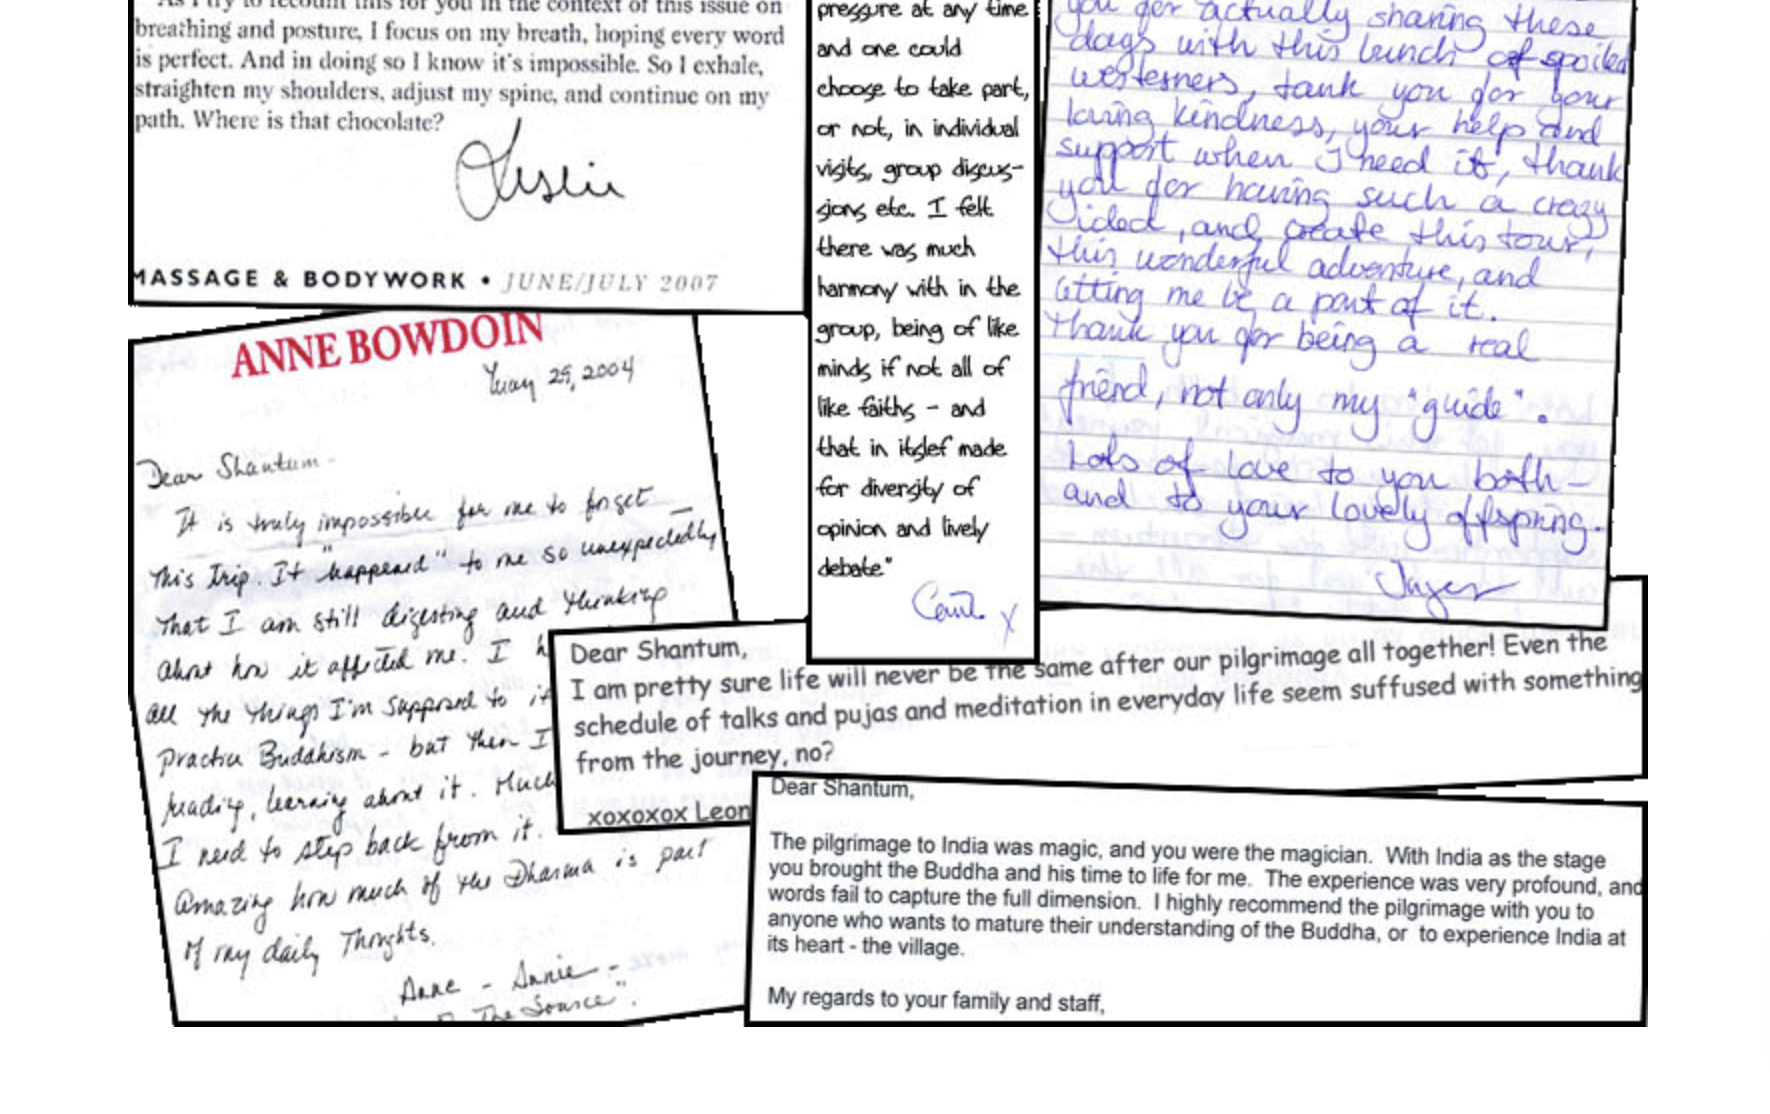 As I try to recount this for you in the context of this issue on
breathing and posture, I focus on my breath, hoping every word
is perfect. And in doing so I know it's impossible. So I exhale,
straighten my shoulders, adjust my spine, and continue on my
path. Where is that chocolate?
Leslie
MASSAGE & BODYWORK • JUNE/JULY 2007
pressure at any time
and one could
choose to take part,
or not, in individual
visits, group discus-
sions etc. I felt
there was much
harmony with in the
group, being of like
minds if not all of
like faiths - and
that in itslef made
for diversity of
opinion and lively
debate."
x
you for actually sharing these
days with this bunch of spoiled
westerners, tank you for your
loving kindness, your help and
support when I need it, thank
you for having such a crazy
ided, and create this tour,
this wonderful adventure, and
letting me be a part of it.
Thank you for being a real
friend, not only my "guide".
Lots of love to you both -
and to your lovely offspring.
ANNE BOWDOIN
May 25, 2004
Dear Shantum -
It is truly impossible for me to forget
this trip. It "happened" to me so unexpectedly
that I am still digesting and thinking
about how it affected me. I
all the things I'm supposed to
practice Buddhism - but then I
reading, learning about it. Much
I need to step back from it.
Amazing how much of the Dharma is part
of my daily Thoughts.
Anne - Annie -
"The Source".
Dear Shantum,
I am pretty sure life will never be the same after our pilgrimage all together! Even the
schedule of talks and pujas and meditation in everyday life seem suffused with something
from the journey, no?
xoxoxox Leon
Dear Shantum,
The pilgrimage to India was magic, and you were the magician. With India as the stage
you brought the Buddha and his time to life for me. The experience was very profound, and
words fail to capture the full dimension. I highly recommend the pilgrimage with you to
anyone who wants to mature their understanding of the Buddha, or to experience India at
its heart - the village.
My regards to your family and staff,